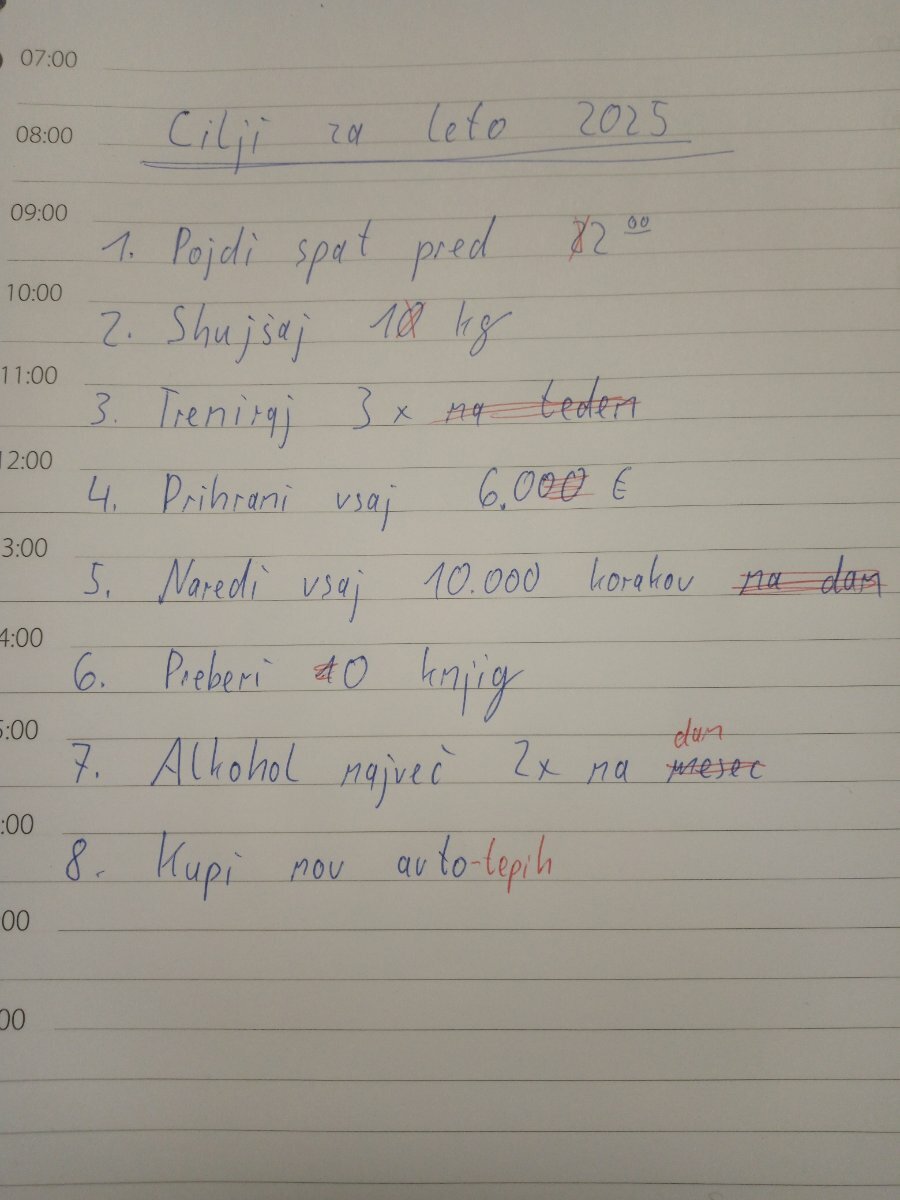 07:00
Cilji za leto 2025
08:00
09:00
1. Pojdi spat pred 22 00
10:00
2. Shujšaj 10 kg
11:00
3. Treniraj 3x na teden
12:00
4. Prihrani vsaj 6.000 €
3:00
5. Naredi vsaj 10.000 korakov na dan
4:00
6. Preberi 10 knjig
5:00
dan
7. Alkohol največ 2x na mesec
:00
8. Kupi nov avto-tepih
00
00